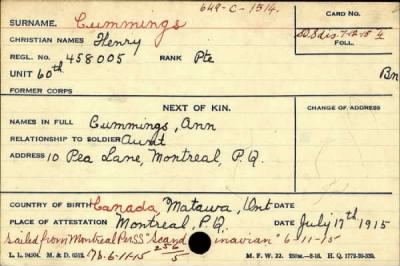 649-C-1514.
SURNAME. Cummings CARD NO.
CHRISTIAN NAMES Henry
REGL. NO. 458005 RANK Pte
FOLL.
UNIT 60th Bn
FORMER CORPS
NEXT OF KIN. CHANGE OF ADDRESS
NAMES IN FULL Cummings, Ann
RELATIONSHIP TO SOLDIER Aunt
ADDRESS 10 Pea Lane, Montreal, P.Q.
COUNTRY OF BIRTH Canada, Matawa, Ont DATE
PLACE OF ATTESTATION Montreal, P.Q. DATE July 17th 1915
sailed from Montreal Per SS "Scandinavian" 6-11-15
M. F. W. 22.